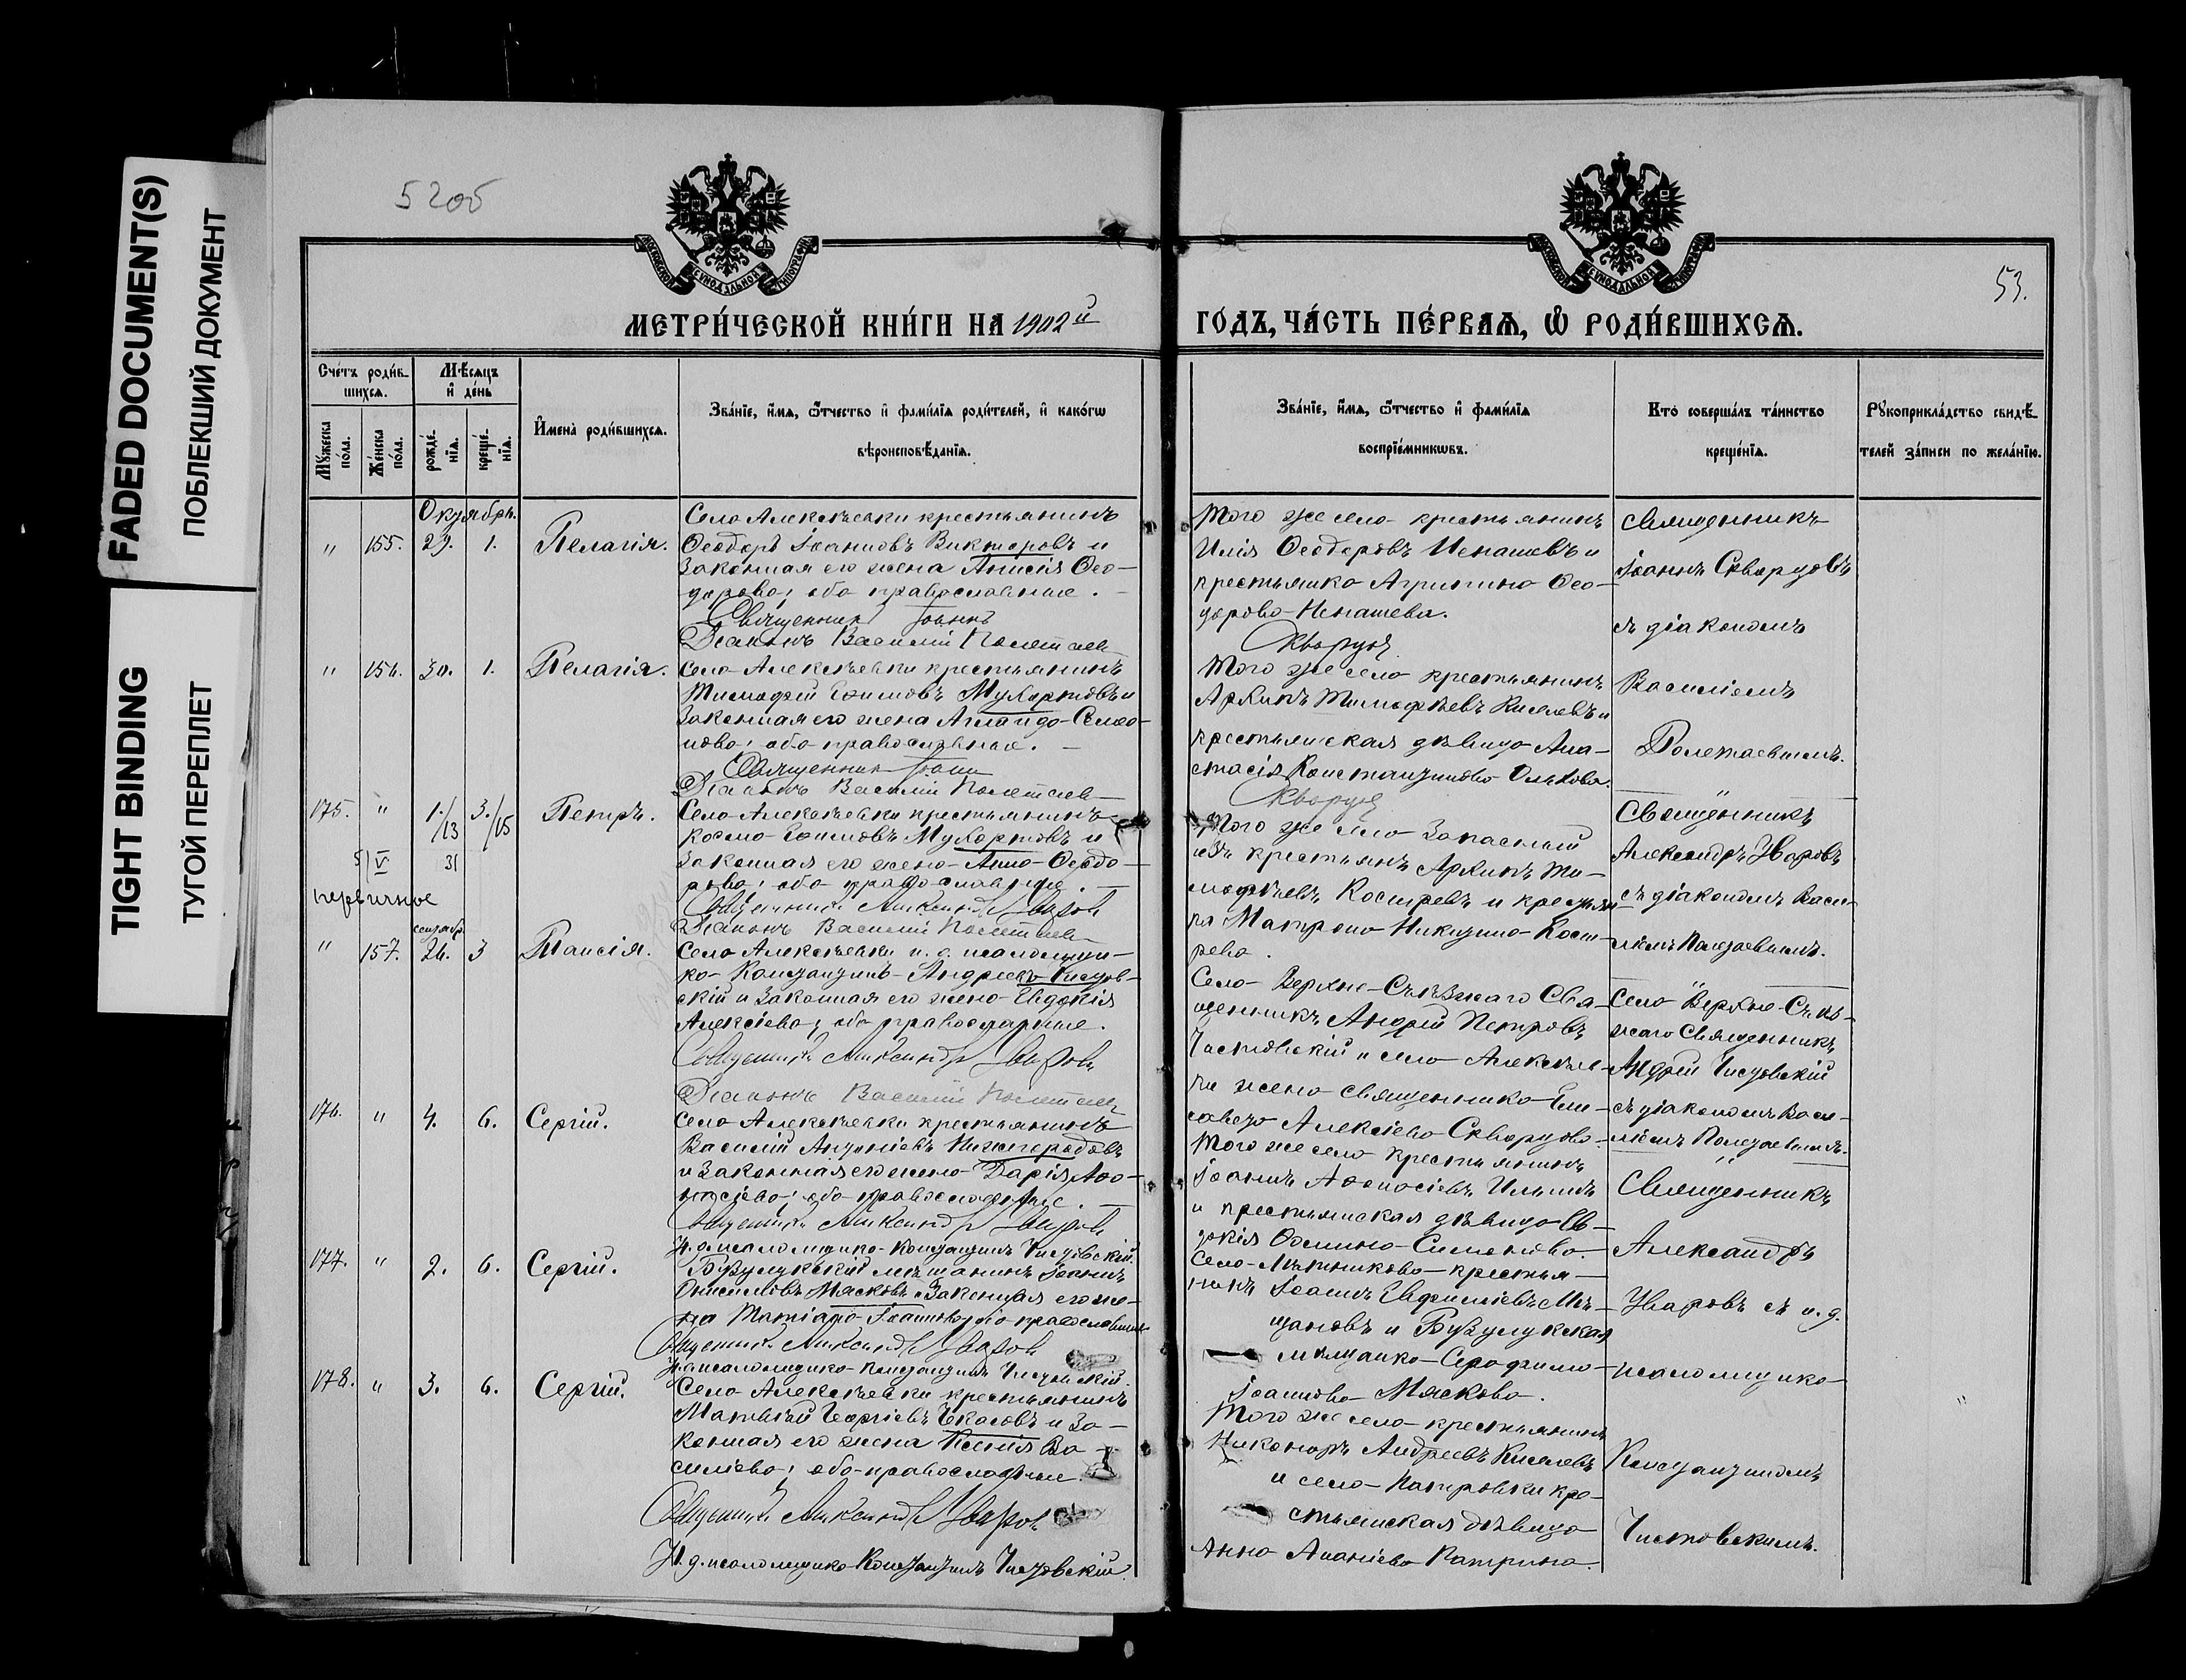 FADED DOCUMENT(S)
ПОБЛЕКШИЙ ДОКУМЕНТ
TIGHT BINDING
ТУГОЙ ПЕРЕПЛЕТ
52об
53.
МЕТРИ́ЧЕСКОЙ КНИ́ГИ НА 1902й
ГО́ДЪ, ЧА́СТЬ ПЕ́РВАѦ, Ѽ РОДИ́ВШИХСѦ.
Сче́тъ роди́в-
шихсѧ.
Мѣ́сѧцъ
и҆ де́нь
Мꙋ́жеска
по́ла.
Же́нска
по́ла.
рожде́-
нїѧ.
креще́-
нїѧ.
И҆мена̀ роди́вшихсѧ.
Зва́нїе, и҆́мѧ, ѻ҆́тчество и҆ фами́лїѧ роди́телей, и҆ како́гѡ
вѣроисповѣ́данїѧ.
Зва́нїе, и҆́мѧ, ѻ҆́тчество и҆ фами́лїѧ
воспрїе́мникѡвъ.
Кто̀ соверша́лъ та́инство
креще́нїѧ.
Рꙋкоприкла́дство свидѣ́-
телей за́писи по жела́нїю.
Октябрь.
" 155. 29. 1. Пелагія.
Села Алексѣевки крестьянинъ
Ѳеодоръ Іоанновъ Викторовъ и
законная его жена Анисія Ѳео-
дорова; оба православные.
Священникъ Іоаннъ
Діаконъ Василій Полетаев
Того же села крестьянинъ
Илія Ѳеодоровъ Ненашевъ и
крестьянка Агрипина Ѳео-
дорова Ненашева.
Скворцов
Священникъ
Іоаннъ Скворцовъ
съ діакономъ
Василіемъ
Полетаевымъ.
" 156. 30. 1. Пелагія.
Села Алексѣевки крестьянинъ
Тимофей Ефимовъ Мухортовъ и
законная его жена Аглаида Симео-
нова; оба православные.
Священник Іоанн
Діаконъ Василій Полетаев
Того же села крестьянинъ
Архипъ Тимофѣевъ Киселевъ и
крестьянская дѣвица Ана-
стасія Константинова Ольхова.
Скворцов
175. " 1./13 3./15 Петръ.
5/VI 31
первичное
Села Алексѣевки крестьянинъ
Косма Ефимовъ Мухортовъ и
законная его жена Анна Ѳеодо-
рова; оба православные.
Священникъ Александръ Уваров
Діаконъ Василій Полетаев
Того же села запасный
изъ крестьянъ Архипъ Ти-
мофѣевъ Костревъ и крестьян-
ка Матрона Никитина Кост-
рева.
Священникъ
Александръ Уваровъ
съ діакономъ Васи-
ліемъ Полетаевымъ.
сентябр.
" 157. 26. 3 Таисія.
Села Алексѣевки и. д. псаломщи-
ка Константинъ Андреевъ Чистов-
скій и законная его жена Евдокія
Алексіева; оба православные.
Священникъ Александръ Уваровъ
Діаконъ Василій Полетаев
Села Верхне-Съѣзжаго Свя-
щенникъ Андрей Петровъ
Чистовскій и села Алексѣев-
ки жена священника Ели-
савета Алексіева Скворцова.
Села Верхне-Съѣз-
жаго Священникъ
Андрей Чистовскій
съ діакономъ Васи-
ліемъ Полетаевымъ.
176. " 4. 6. Сергій.
Села Алексѣевки крестьянинъ
Василій Антоніевъ Нижегородовъ
и законная его жена Дарія Аѳа-
насіева; оба православные.
Священникъ Александръ Уваровъ
И. д. псаломщика Константинъ Чистовскій.
Того же села крестьянинъ
Іоаннъ Аѳанасіевъ Ильинъ
и крестьянская дѣвица Ев-
докія Ѳомина Симонова.
Священникъ
Александръ
Уваровъ съ и. д.
псаломщика
Константиномъ
Чистовскимъ.
177. " 2. 6. Сергій.
Бузулукскій мѣщанинъ Іоаннъ
Онисимовъ Мясковъ и законная его же-
на Татіана Іоаннова; оба православные
Священникъ Александръ Уваров
И. д. псаломщика Константинъ Чистовскій.
Села Мѣтниково крестья-
нинъ Іоаннъ Евфиміевъ Мѣ-
щановъ и Бузулукская
мѣщанка Серафима
Іоаннова Мяскова.
178. " 3. 6. Сергій.
Села Алексѣевки крестьянинъ
Матвѣй Георгіевъ Чкаловъ и за-
конная его жена Ксенія Ва-
силіева; оба православные.
Священникъ Александръ Уваров
И. д. псаломщика Константинъ Чистовскій.
Того же села крестьянинъ
Никаноръ Андреевъ Киселевъ
и села Патровки кре-
стьянская дѣвица
Анна Ананіева Катрина.